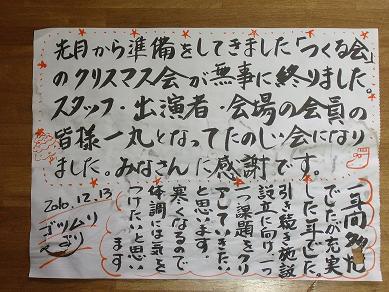 先月から準備をしてきました「つくる会」
のクリスマス会が無事に終りました。
スタッフ・出演者・会場の会員の
皆様一丸となってたのしい会になり
ました。みなさんに感謝です。
一年間多忙
でしたが充実
した年でした。
引き続き施設
設立に向け、一つ
一つ課題をクリ
アしていきたい
と思います。
寒くなるので
体調には気を
つけたいと思い
ます
2010.12.13
ゴツムリ